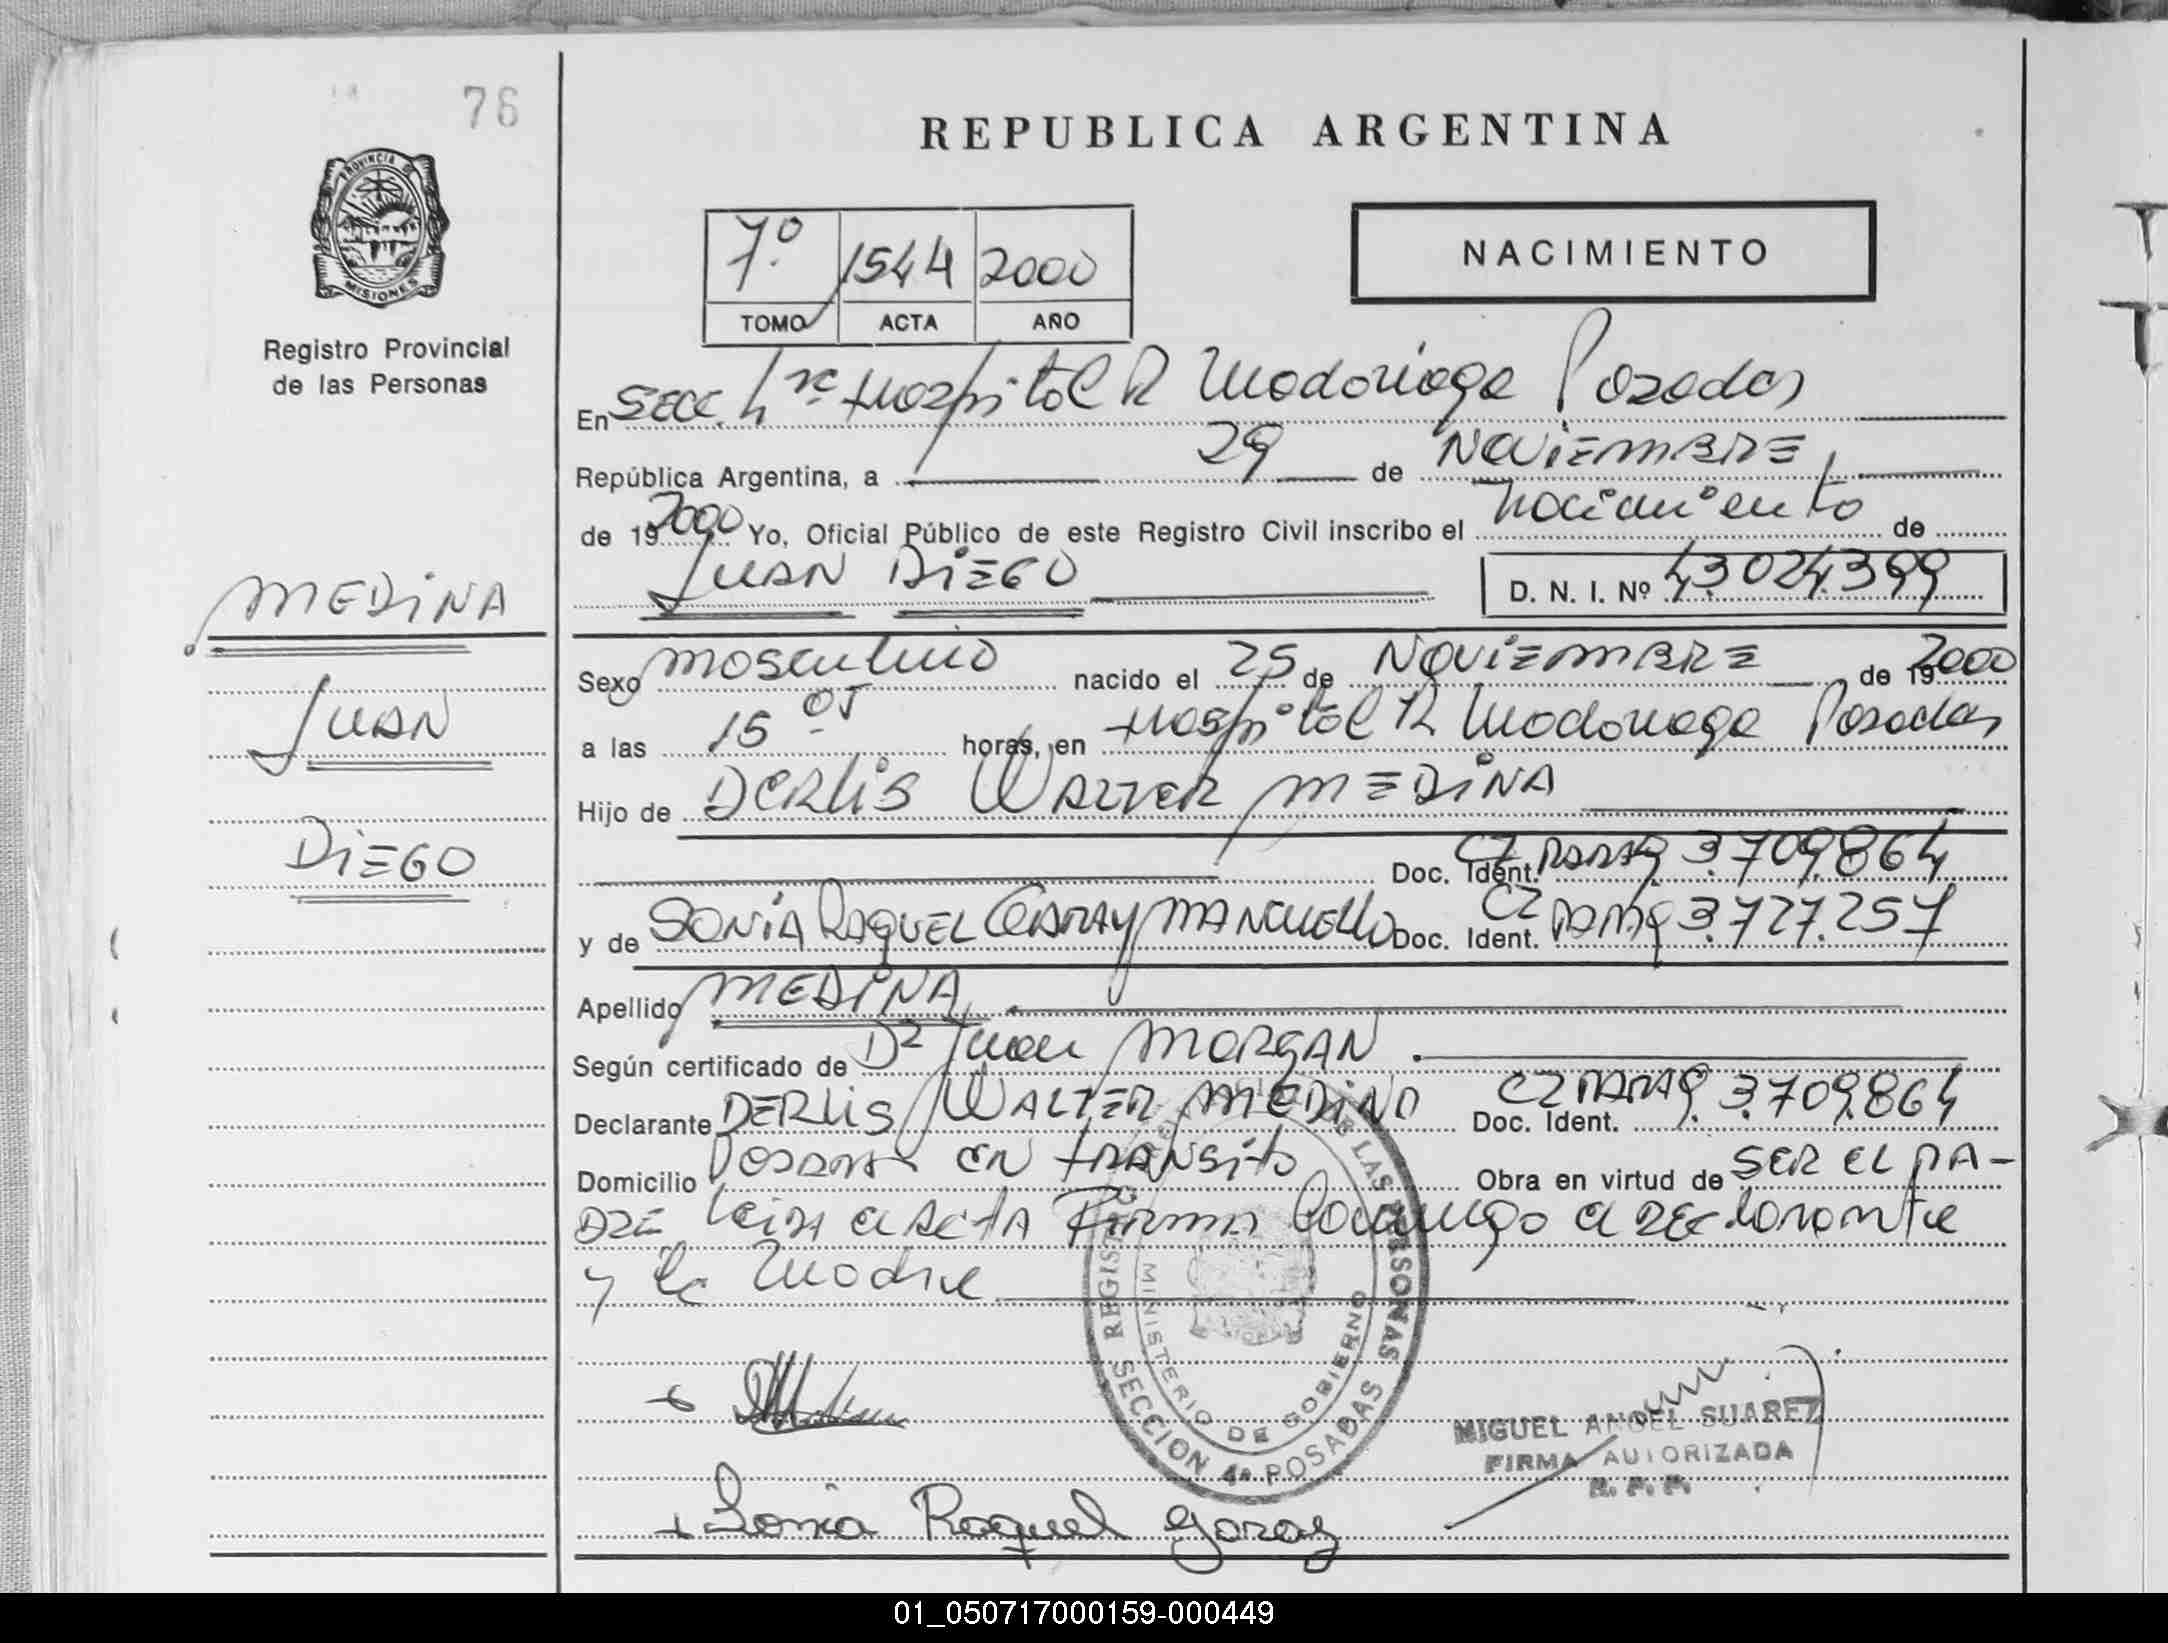 76
REPUBLICA ARGENTINA
PROVINCIA DE
MISIONES
Registro Provincial
de las Personas
7º 1544 2000
TOMO ACTA AÑO
NACIMIENTO
En SECC. 4ta Hospital R Madariaga Posadas
República Argentina, a 29 de NOVIEMBRE
de 19 2000 Yo, Oficial Público de este Registro Civil inscribo el nacimiento de
JUAN DIEGO D. N. I. Nº 43.024.399
MEDINA
JUAN
DIEGO
Sexo masculino nacido el 25 de NOVIEMBRE de 19 2000
a las 15 05 horas, en Hospital R Madariaga Posadas
Hijo de DERLIS WALTER MEDINA
Doc. Ident. CI PARAG 3.709.864
y de SONIA RAQUEL GARAY MANCUELLO Doc. Ident. CI PARAG 3.727.257
Apellido MEDINA
Según certificado de Dr Juan MORGAN
Declarante DERLIS WALTER MEDINA Doc. Ident. CI PARAG 3.709.864
Domicilio Posadas EN TRANSITO Obra en virtud de SER EL PA-
DRE Leida el ACTA Firman Conmigo el declarante
y la Madre
REGISTRO DE LAS PERSONAS
SECCION 4ª POSADAS
MINISTERIO DE GOBIERNO
MIGUEL ANGEL SUAREZ
FIRMA AUTORIZADA
R. P. P.
Sonia Raquel Garay
01_050717000159-000449